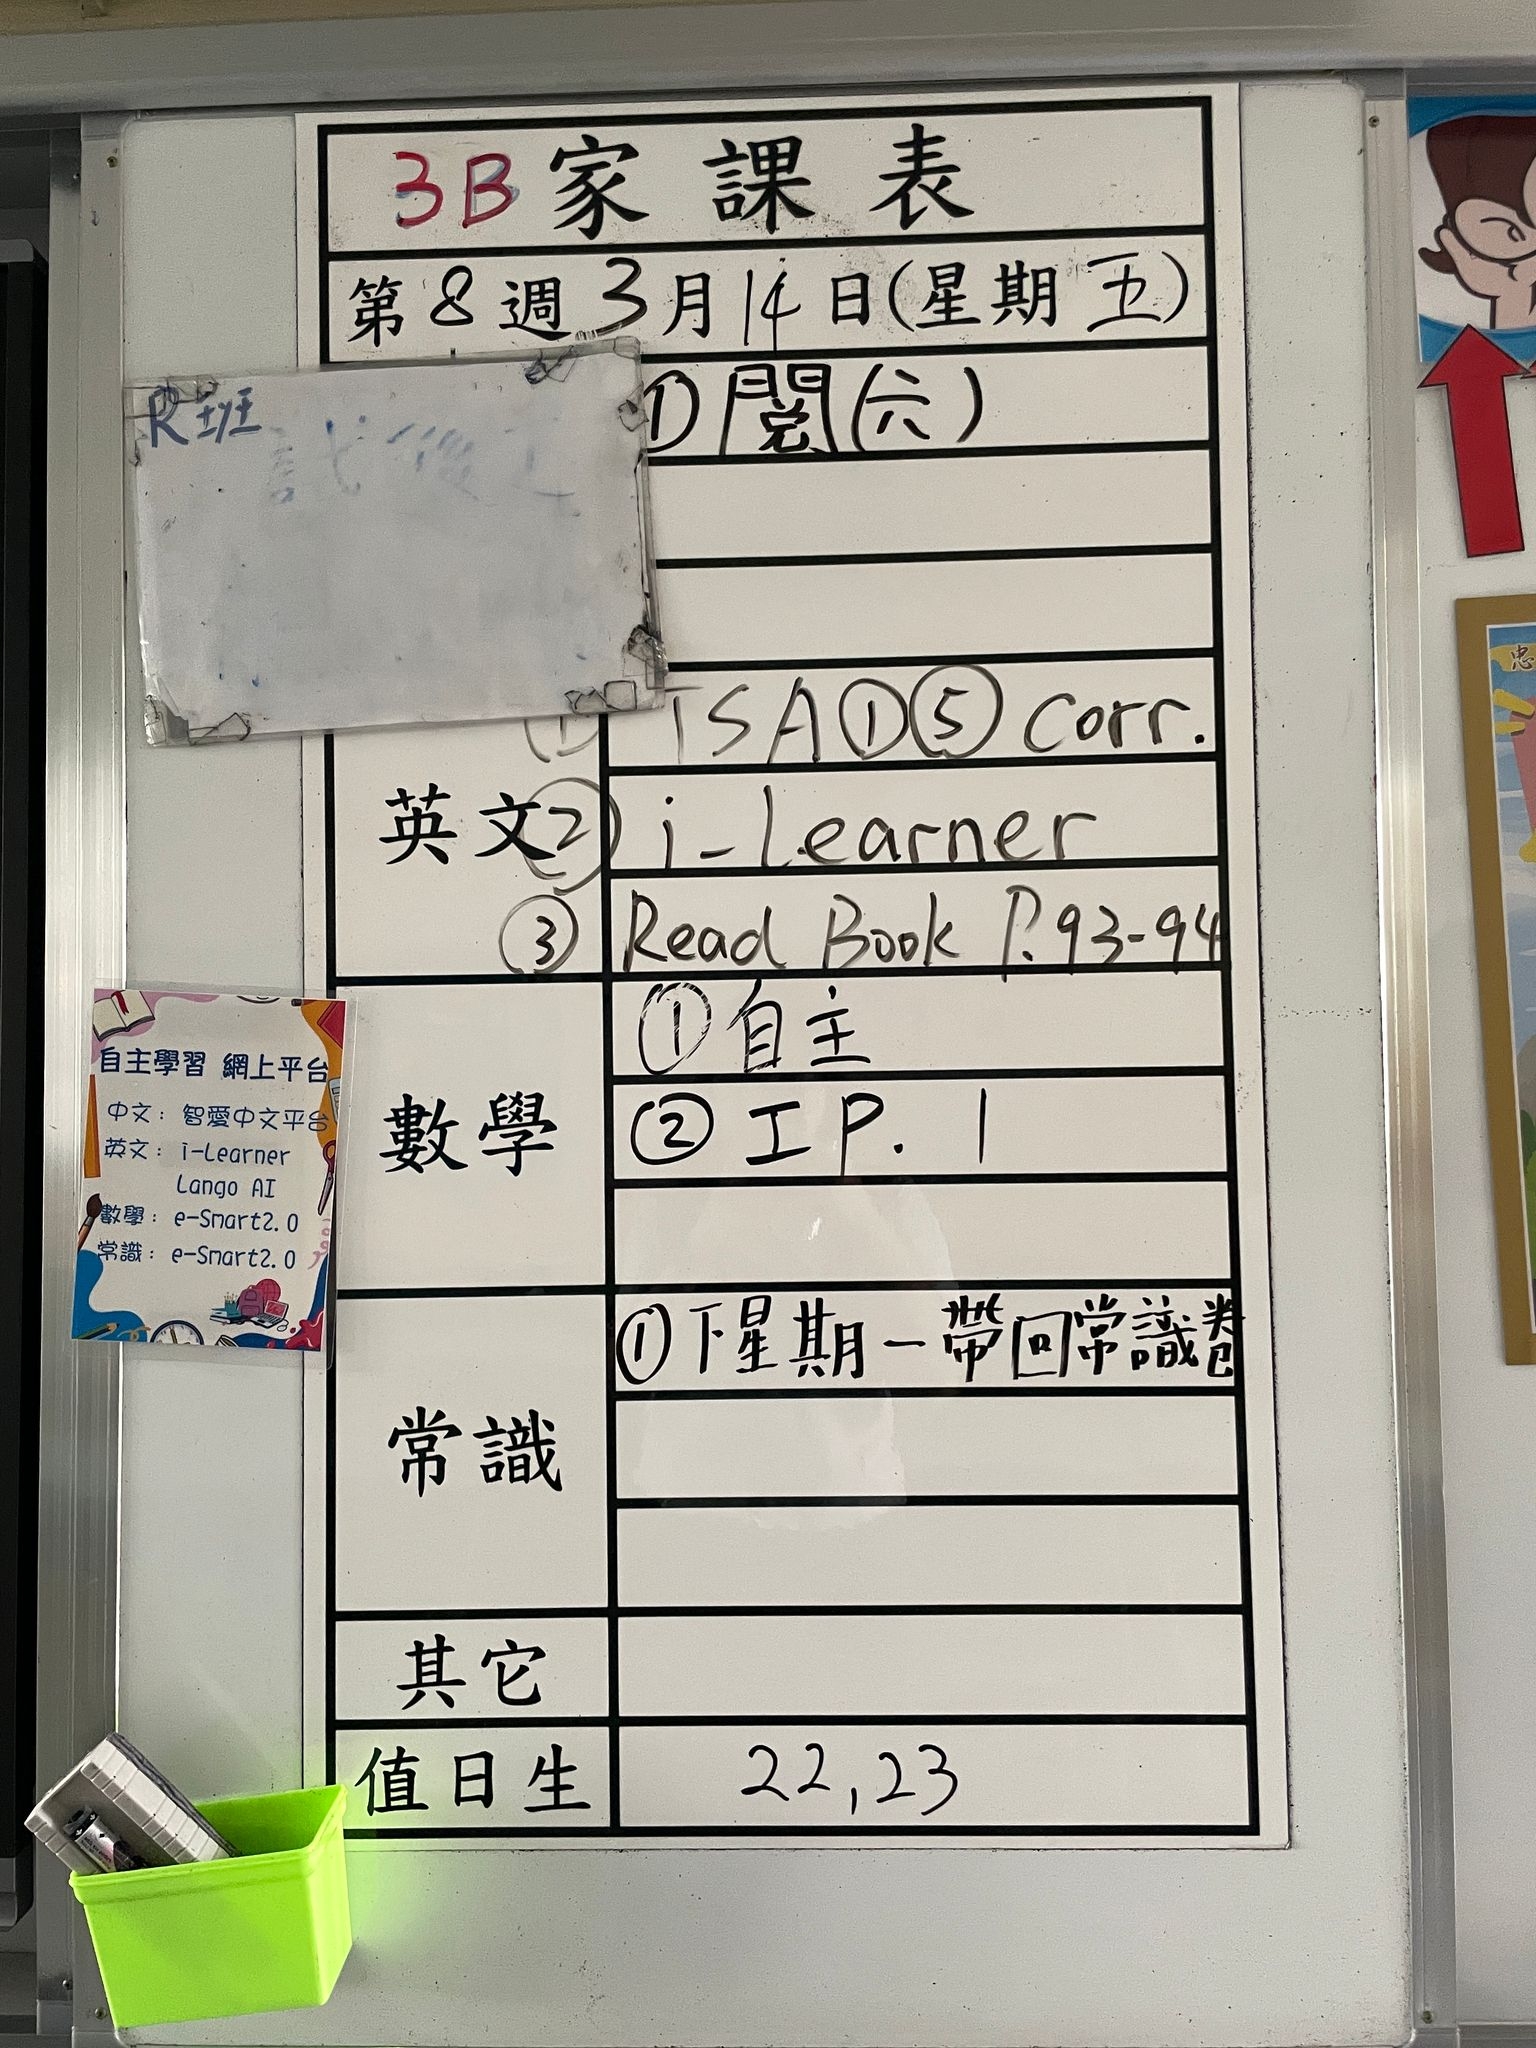 3B 家課表
第 8 週 3 月 14 日(星期 五)
R班
① 閱(六)
① TSA①⑤ corr.
英文
② i-Learner
③ Read Book P.93-94
數學
① 自主
② 工 P. 1
常識
① 下星期一帶回常識卷
其它
值日生
22,23
自主學習 網上平台
中文: 智愛中文平台
英文: i-Learner
Lango AI
數學: e-Smart2.0
常識: e-Smart2.0
忠